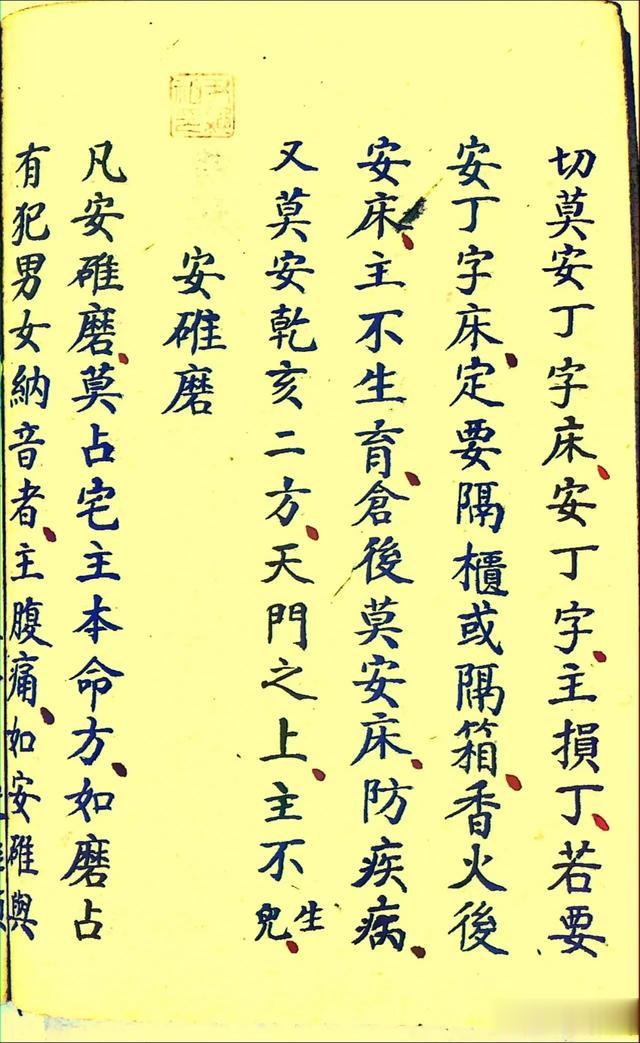 切莫安丁字床安丁字主損丁若要
安丁字床定要隔櫃或隔箱香火後
安床主不生育倉後莫安床防疾病
又莫安乾亥二方天門之上主不生兒
安碓磨
凡安碓磨莫占宅主本命方如磨占
有犯男女納音者主腹痛如安碓與